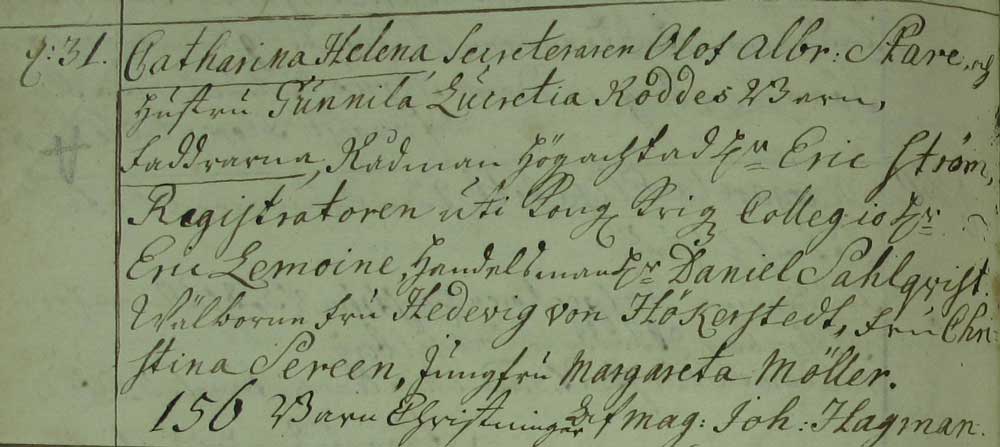 d: 31. Catharina Helena, Secreteraren Olof Albr: Stare, och
Hustru Gunnila Lucretia Roddes Barn,
Faddrarna, Rådman Högachtad Hr Eric Ström,
Registratoren uti Kong. Krigz Collegio Hr
Eric Lemoine, Handelsman Hr Daniel Sahlqvist.
Wälborne Fru Hedevig von Hökerstedt, Fru Chri
stina Sereen, Jungfru Margareta Möller.
156 Barn Christningar af Mag: Joh: Hagman.